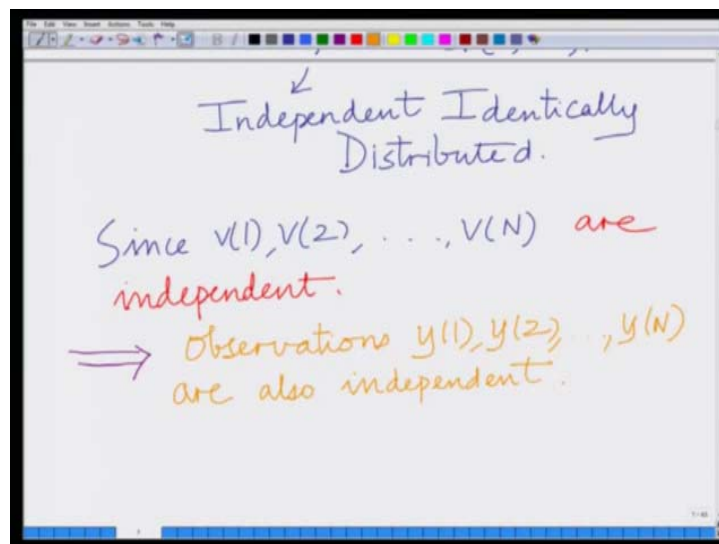 File Edit View Insert Actions Tools Help
Independent Identically
Distributed.
Since v(1), v(2), . . ., v(N) are
independent.
⟹ Observations y(1), y(2), . . , y(N)
are also independent.